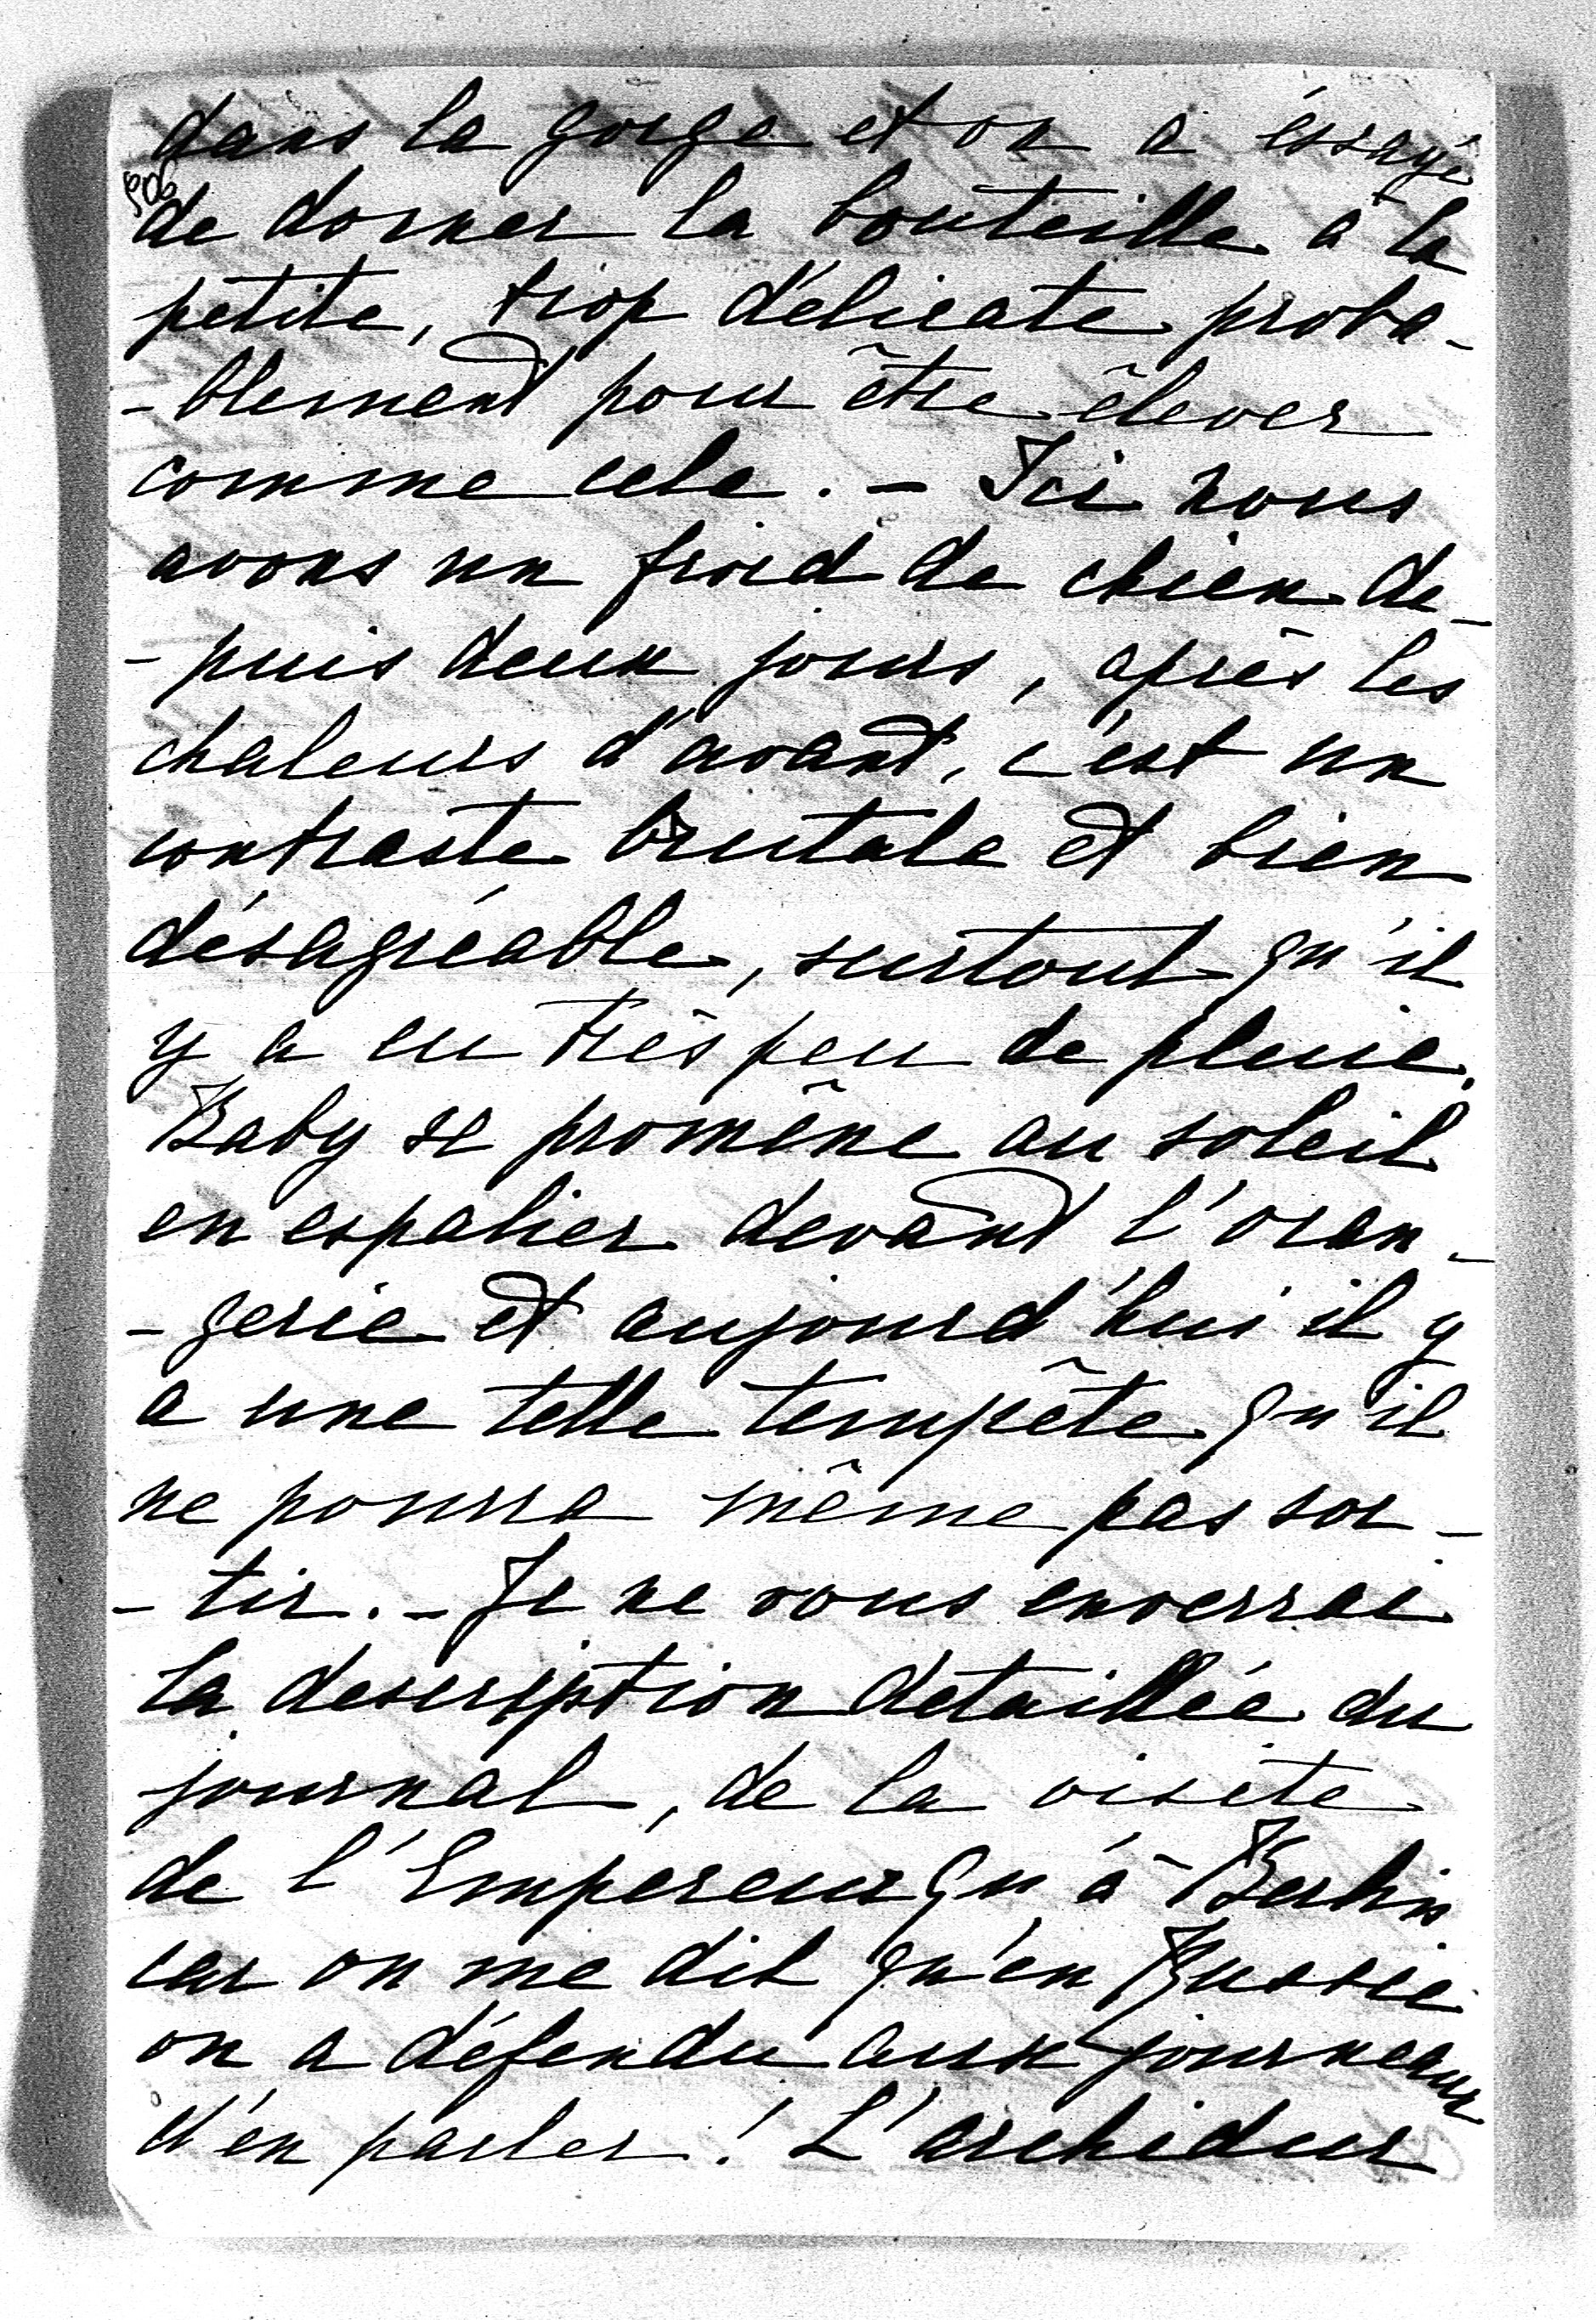 dans la gorge et on a éssayé
de donner la bouteille à la
petite, trop délicate proba-
-blement pour être élever
comme cela. - Ici nous
avons un froid de chien de-
-puis deux jours, après les
chaleurs d'avant, c'est un
contraste brutale et bien
désagréable, surtout qu'il
y a eu très peu de pluie.
Baby se promène au soleil
en espalier devant l'oran-
-gerie et aujourd'hui il y
a une telle tempête qu'il
ne pourra même pas sor-
-tir. - Je ne vous enverrai
la description detaillée du
journal, de la visite
de l'Empereur qu'à Berlin
car on me dit qu'en Russie
on a défendu aux journeaux
d'en parler! L'archiduc